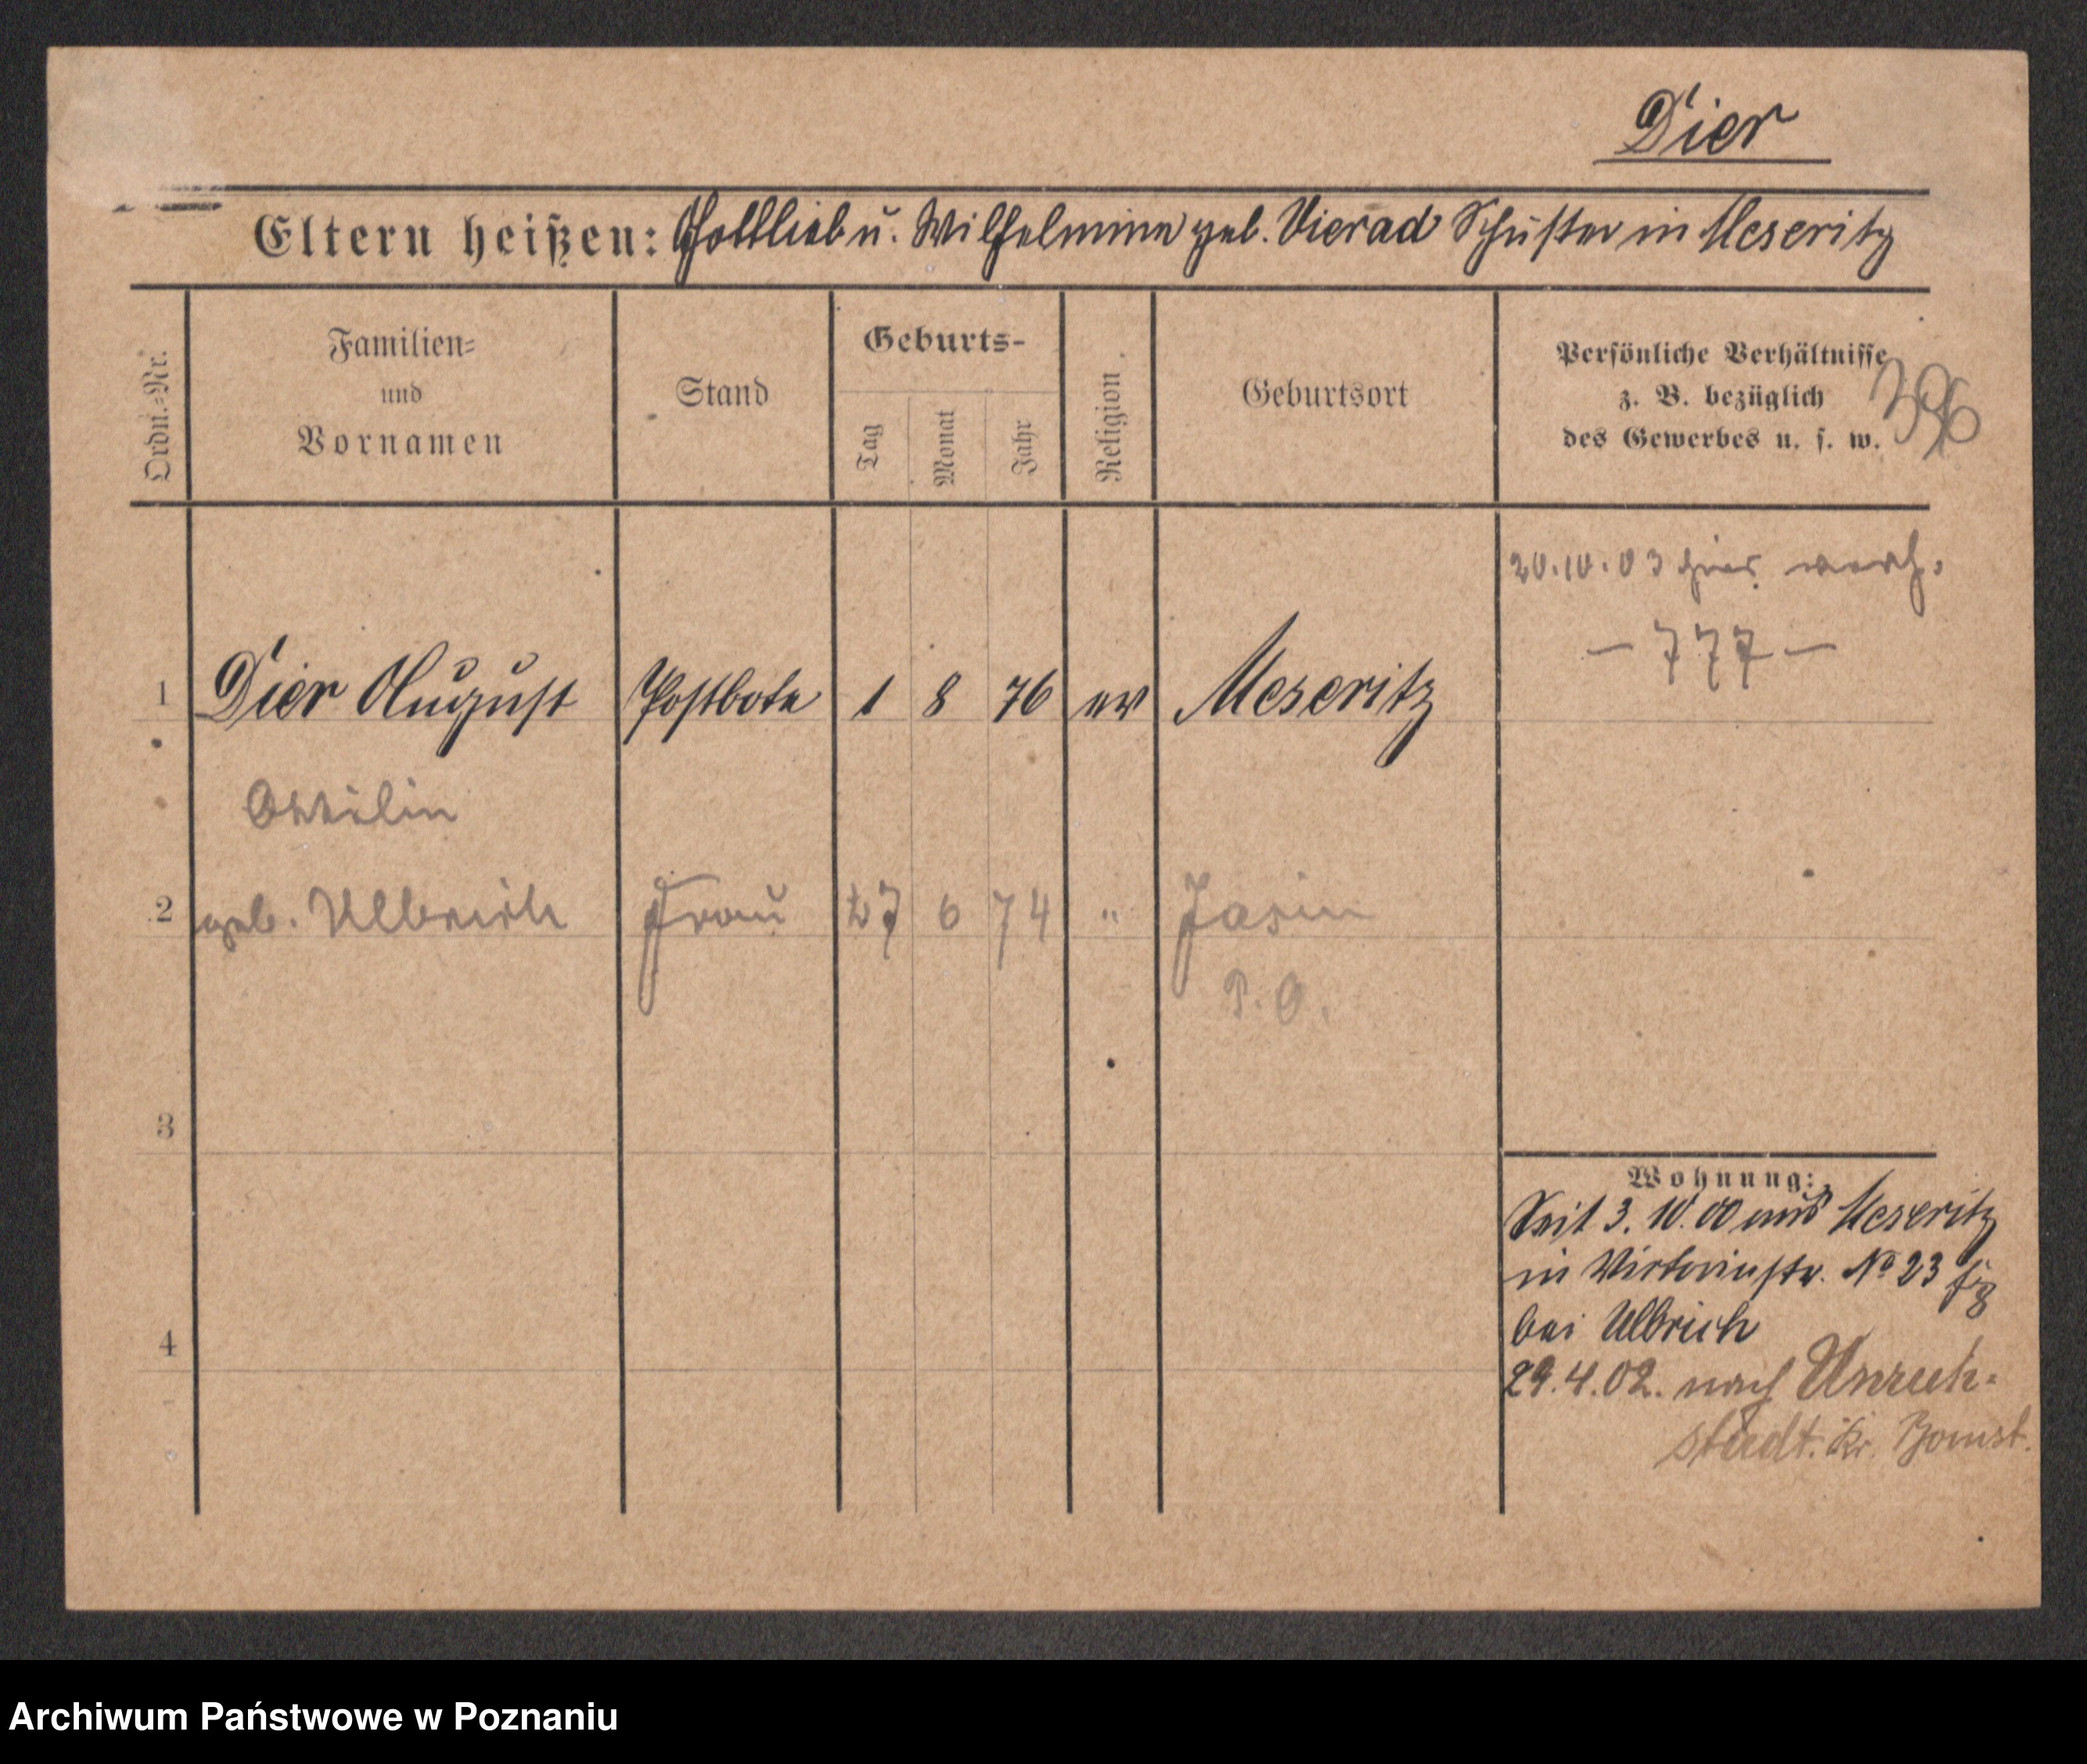 Dier
Eltern heißen: Gottlieb u. Wilhelmine geb. Vierad Schuster in Meseritz
Ordn.-Nr.
Familien-
und
Vornamen
Stand
Geburts-
Tag
Monat
Jahr
Religion.
Geburtsort
Persönliche Verhältnisse
z. B. bezüglich
des Gewerbes u. s. w.
396
20.10.03 hier
- 777 -
1 Dier August Postbote 1 8 76 ev Meseritz
Ottilie
2 geb. Ulbrich Frau 27 6 74 " Jasin
P. O.
3
4
Wohnung:
Seit 3. 10. 00 aus Meseritz
in Victoriastr. No 23
bei Ulbrich
29.4.02. nach Unruh-
stadt. Kr. Bomst.
Archiwum Państwowe w Poznaniu